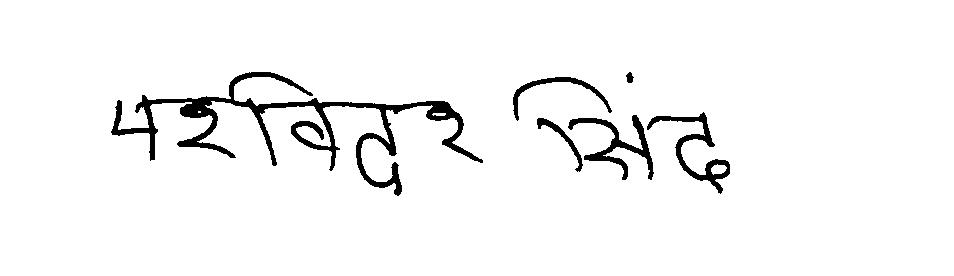 परविदर सिंह